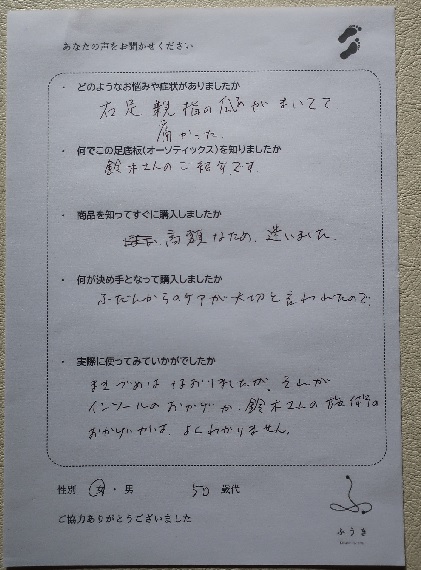 あなたの声をお聞かせください
・ どのようなお悩みや症状がありましたか
右足 親指の爪がまいてて
痛かった。
・ 何でこの足底板(オーソティックス)を知りましたか
鈴木さんのご紹介です。
・ 商品を知ってすぐに購入しましたか
高額なため、迷いました。
・ 何が決め手となって購入しましたか
ふだんからのケアが大切と言われたので、
・ 実際に使ってみていかがでしたか
まきづめは なおりましたが、それが
インソールのおかげか、鈴木さんの施術の
おかげかは、よくわかりません。
性別 女・男 50 歳代
ご協力ありがとうございました
ふうき